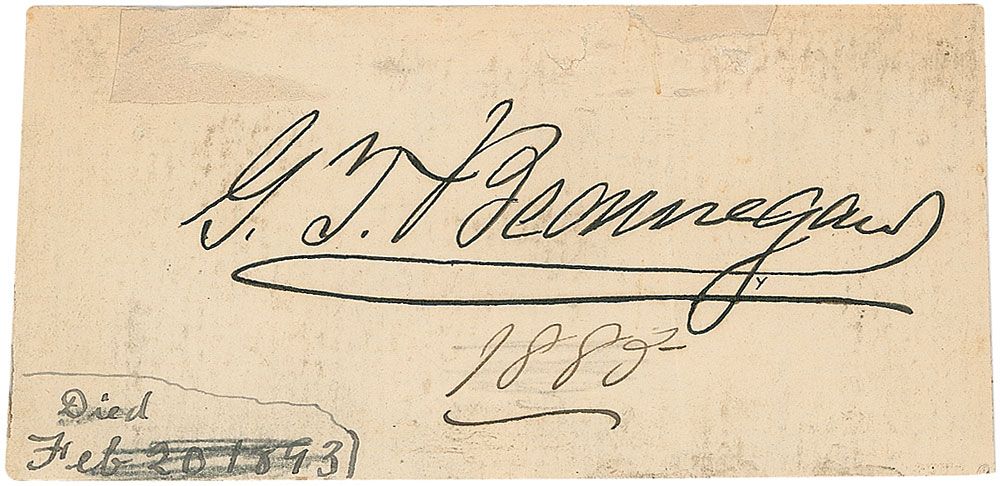 G. T. Beauregard
1885
Died
Feb 20 1893